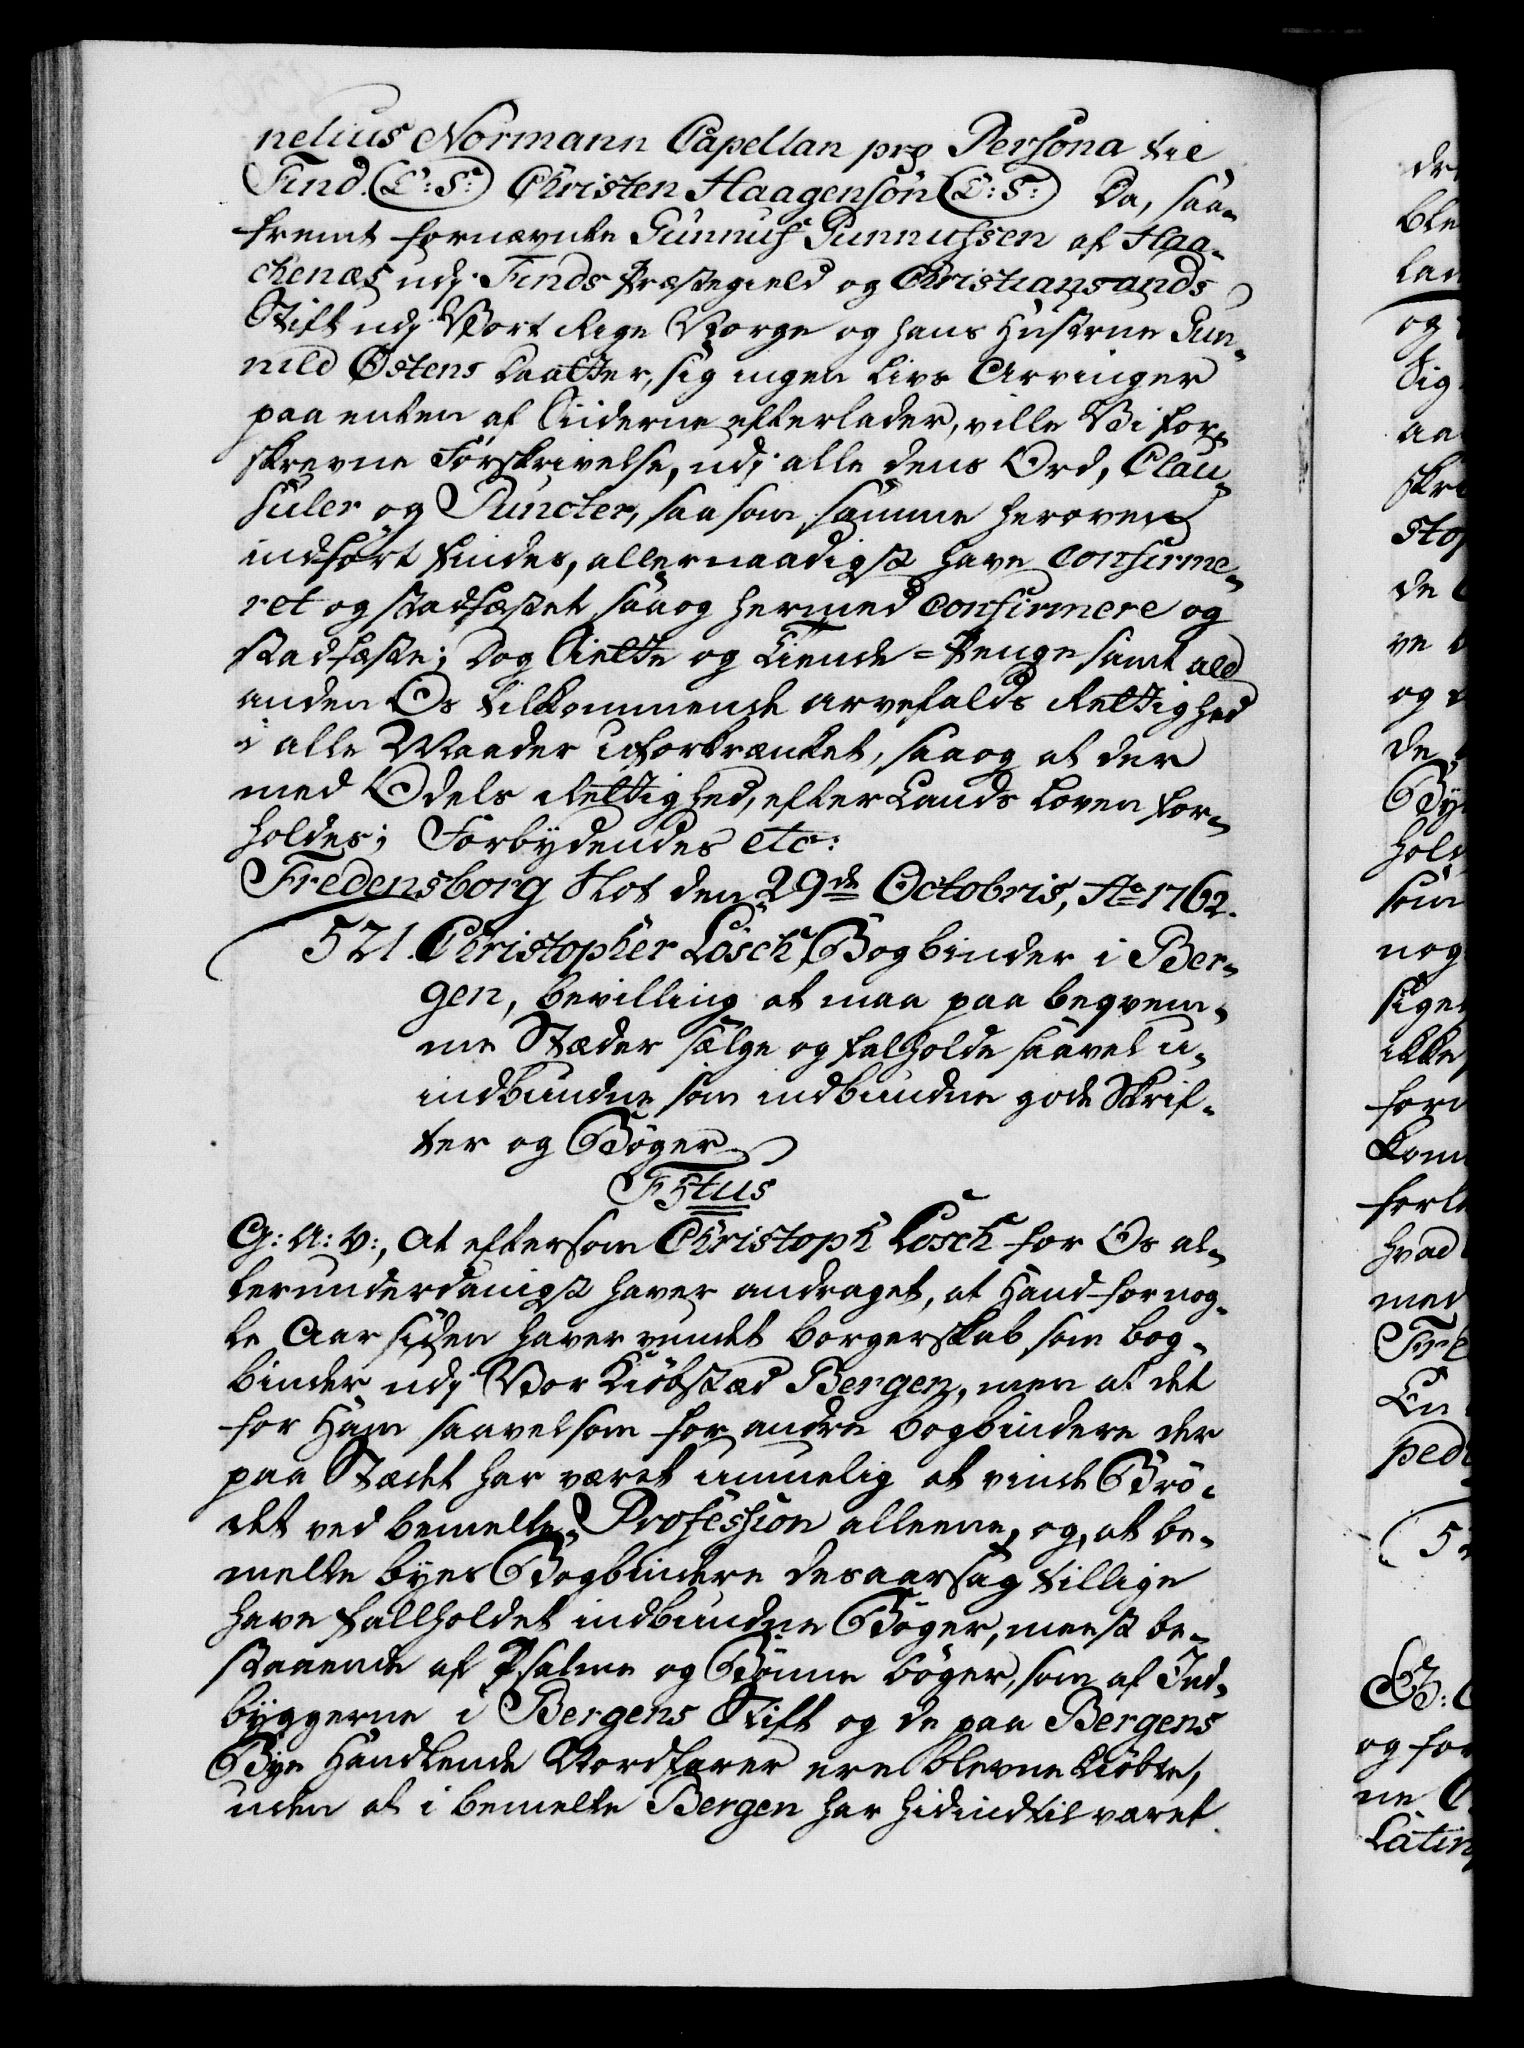 nelius Normann Capellan pro Persona til
Find. (L:S:) Christen Haagensön (L:S:) Da, saa-
fremt fornævnte Gunnuf Gunnufsen af Haa-
chenæs udj Finds Præstegield og Christiansands
Stift udj Vort Rige Norge og hans Hustrue Gun-
nild Østens Daatter, sig ingen Livs Arvinger
paa enten af Siiderne efterlader, ville Vi for-
skrevne Forskrivelse, udj alle dens Ord, Clau-
suler og Puncter, saasom samme heroven
indført findes, allernaadigst have confirme-
ret og stadfæstet saa og hermed confirmere og
stadfæste; Dog Siette og Tiende-Penge samt ald
anden Os tilkommende arvefalds Rettighed
i alle Maader uforkrænket, saa og at der
med Odels Rettighed, efter Lands Loven for-
holdes; Forbydendes etc:
Fredensborg Slot den 29de Octobris, Ao 1762.
521. Christopher Lösch, Bogbinder i Ber-
gen, bevilling at maa paa beqvem-
me Stæder sælge og falholde saavel u-
indbundne som indbundne gode Skrif-
ter og Bøger
F5tus
G: A: V:, at eftersom Christoph Losch for Os al-
lerunderdanigst haver andraget, at Hand for nog-
le Aar siden haver vundet borgerskab som bog-
binder udj Vor Kiøbstæd Bergen, men at det
for Ham saavelsom for andre bogbindere der
paa Stædet har været umuelig at vinde Brö-
det ved bemelte Profession alleene, og, at be-
melte byes Bogbindere desaarsag tillige
have fallholdet indbundne Bøger, meest be-
staaende af Psalme og Bønne bøger, som af Ind-
byggerne i Bergens Stift og de paa Bergens
Bye Handlende Nordfarer ere blevne kiøbte,
uden at i bemelte Bergen har hidindtil været